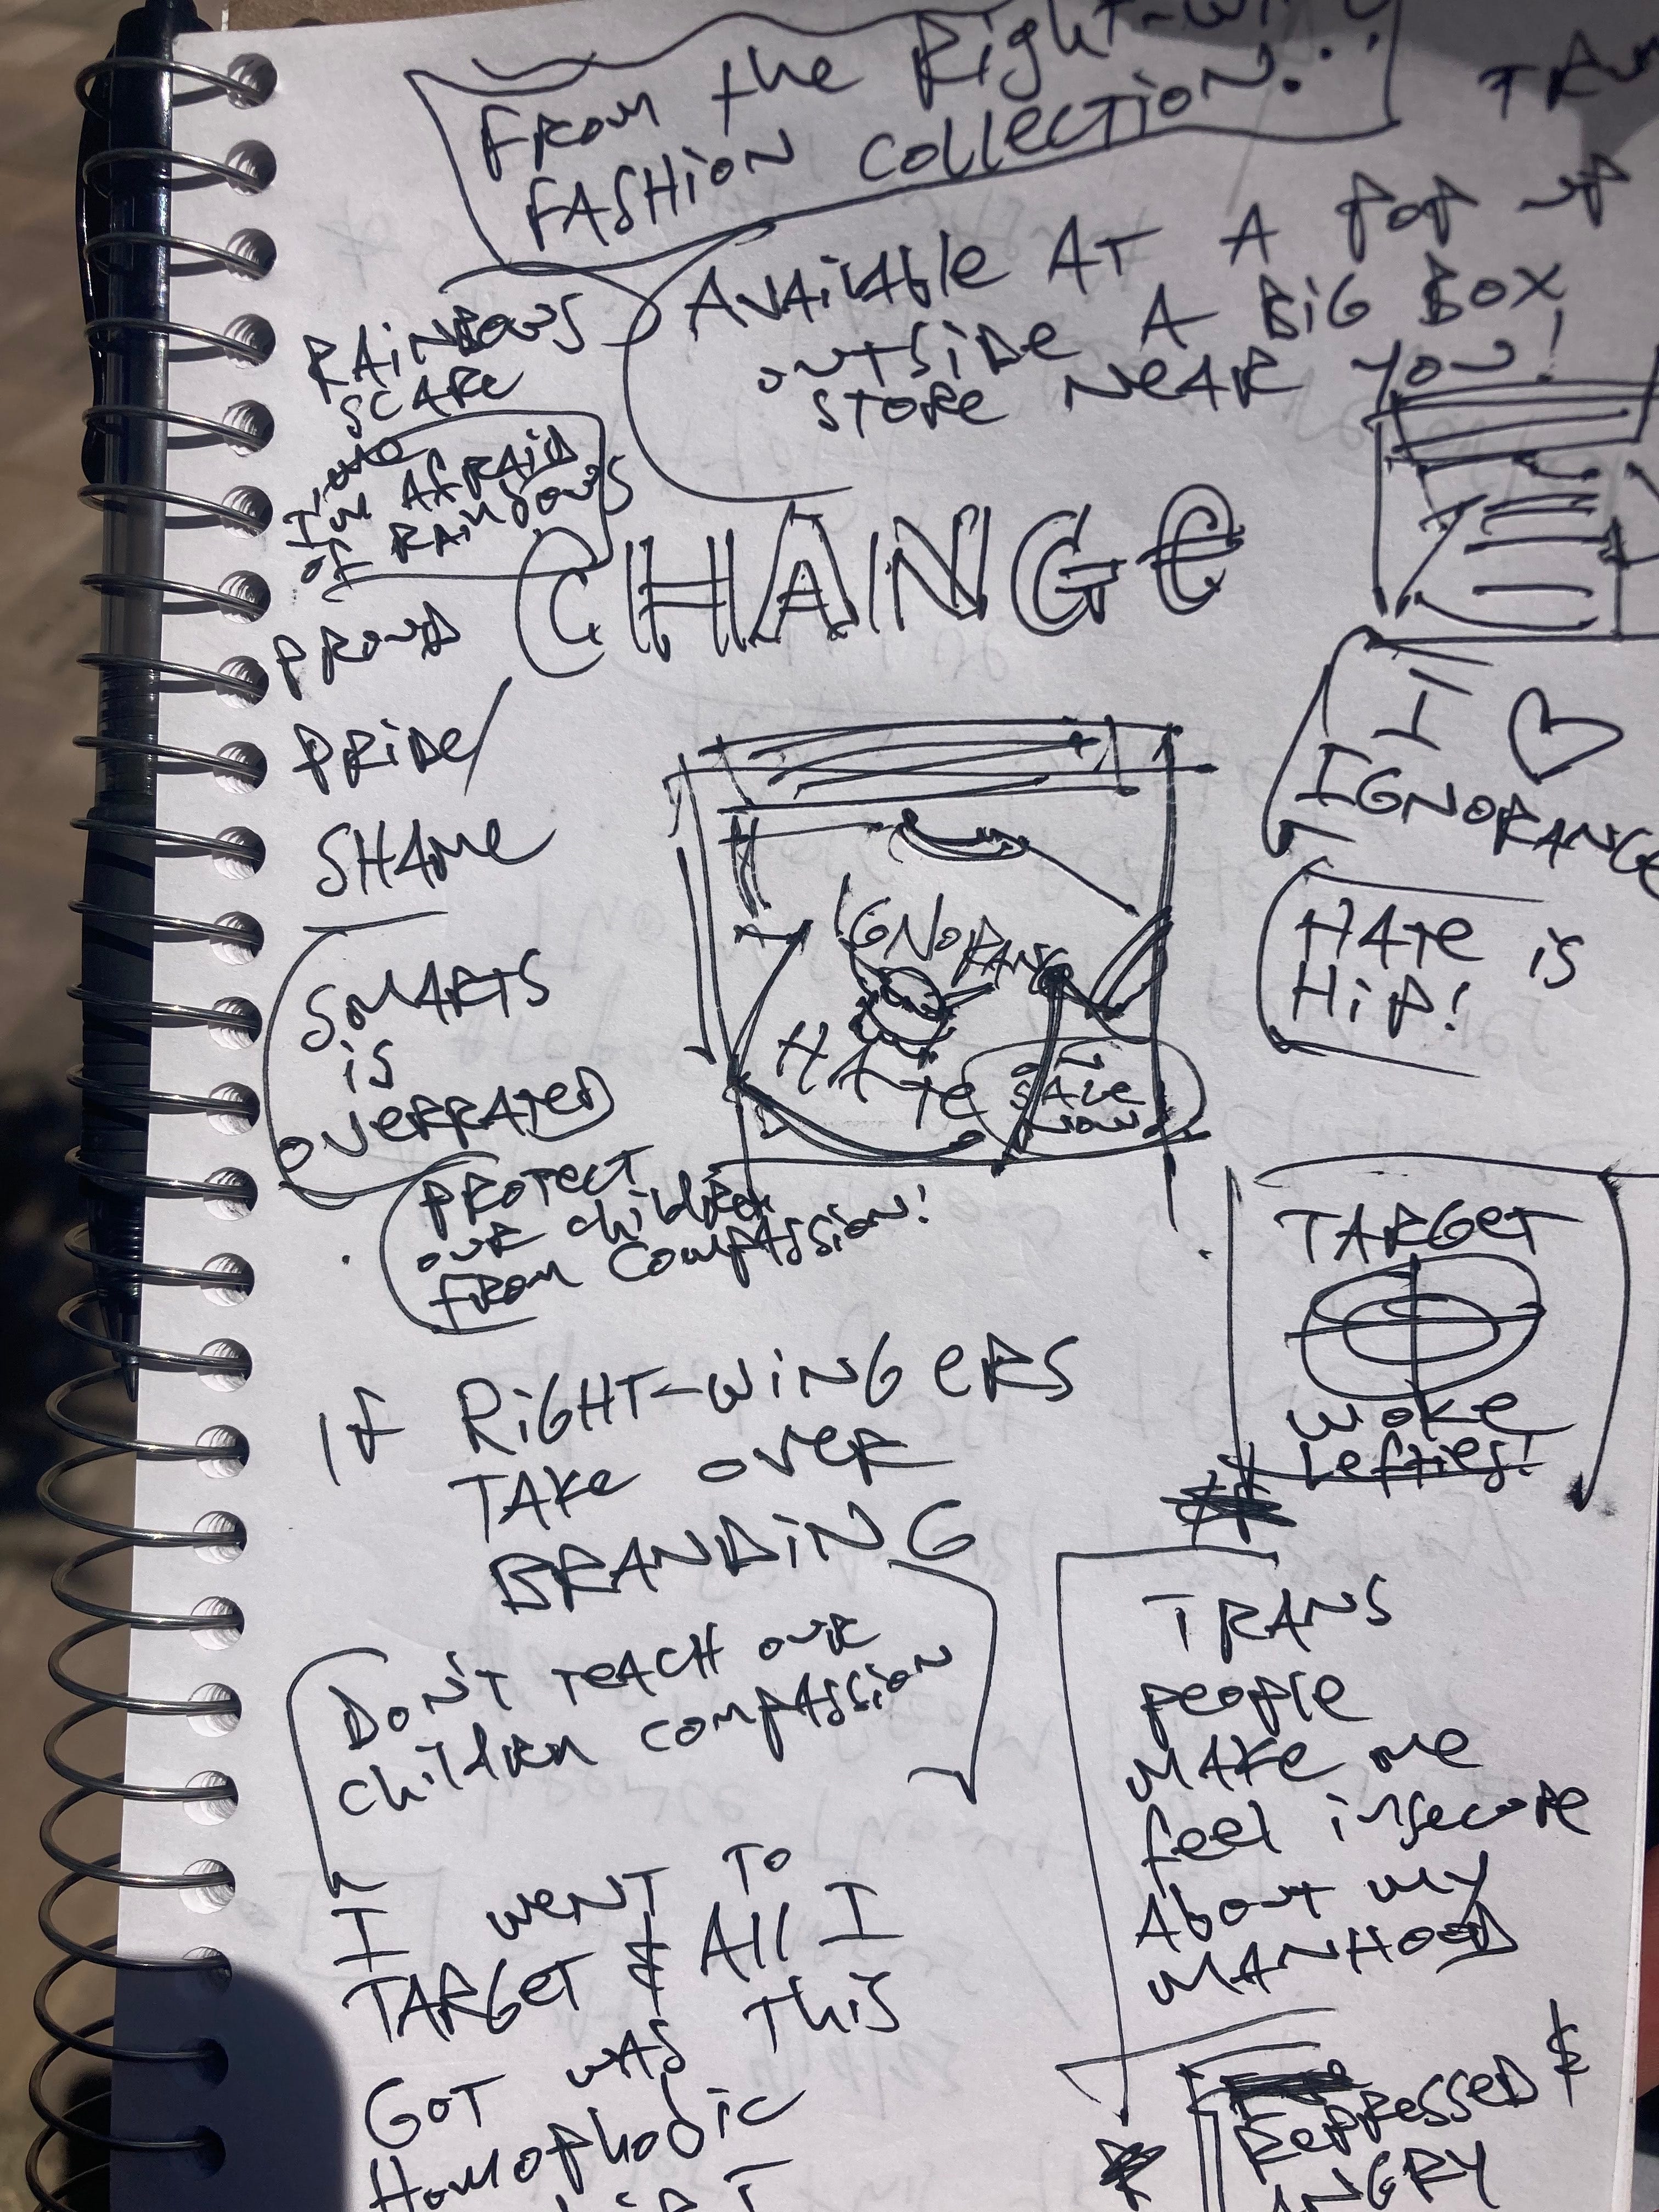 From the Right-wi
Fashion Collection...
TRU
Available at a pop up
outside a Big Box
store near you!
Rainbows
scare
me
I'm afraid
of rainbows
CHANGE
Proud
Pride/
Shame
I ♡
Ignorance
Hate is
Hip!
Ignorance
Hate
on
sale
now
Smarts
is
overrated
Protect
our children
from compassion!
Target
woke
lefties!
If Right-wingers
take over
Branding
Don't teach our
children compassion
Trans
people
make me
feel insecure
about my
manhood
I went to
Target & all I
Got was this
Homophobic
Repressed &
Angry